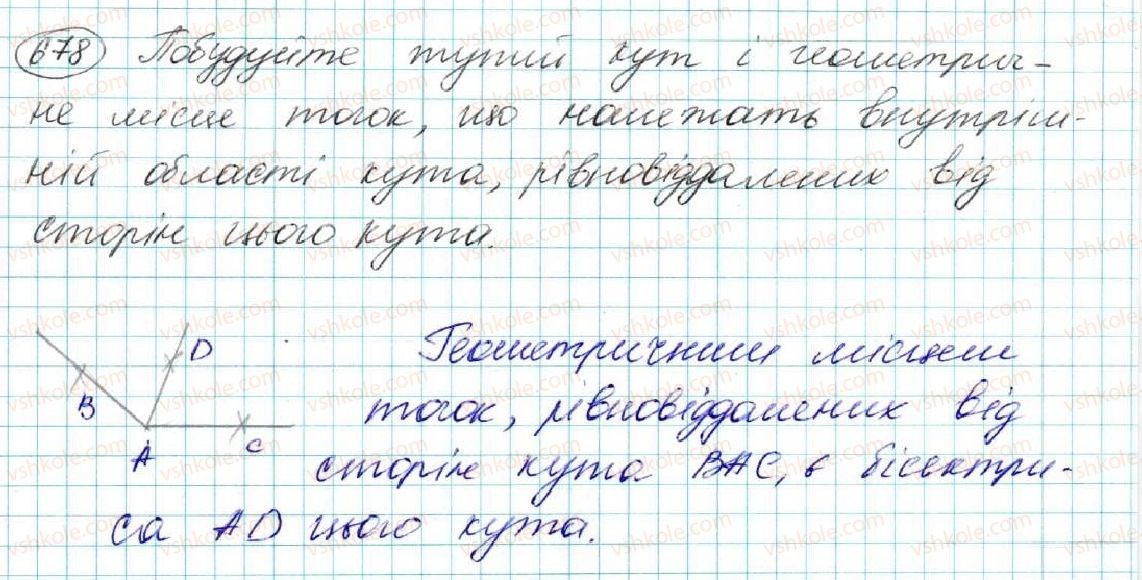 678 Побудуйте тупий кут і геометрич-
не місце точок, що належать внутріш-
ній області кута, рівновіддалених від
сторін цього кута.
D
B
A
C
Геометричним місцем
точок, рівновіддалених від
сторін кута BAC, є бісектри-
са AD цього кута.